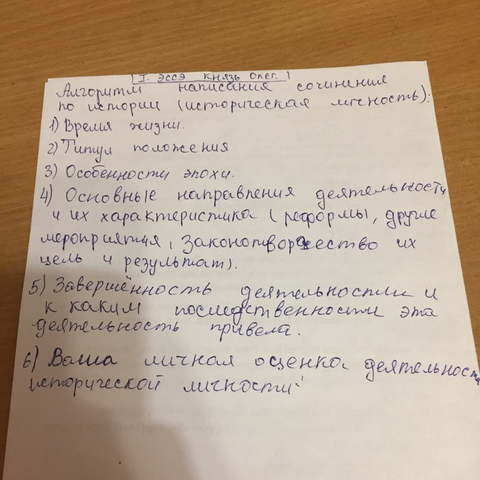 I. эссэ князь Олег.
Алгоритм написания сочинения
по истории (историческая личность):
1) Время жизни.
2) Титул положения
3) Особенности эпохи.
4) Основные направления деятельности
и их характеристика (реформы, другие
мероприятия, законотворчество их
цель и результат).
5) Завершённость деятельности и
к каким последственности эта
деятельность привела.
6) Ваша личная оценка деятельности
исторической личности